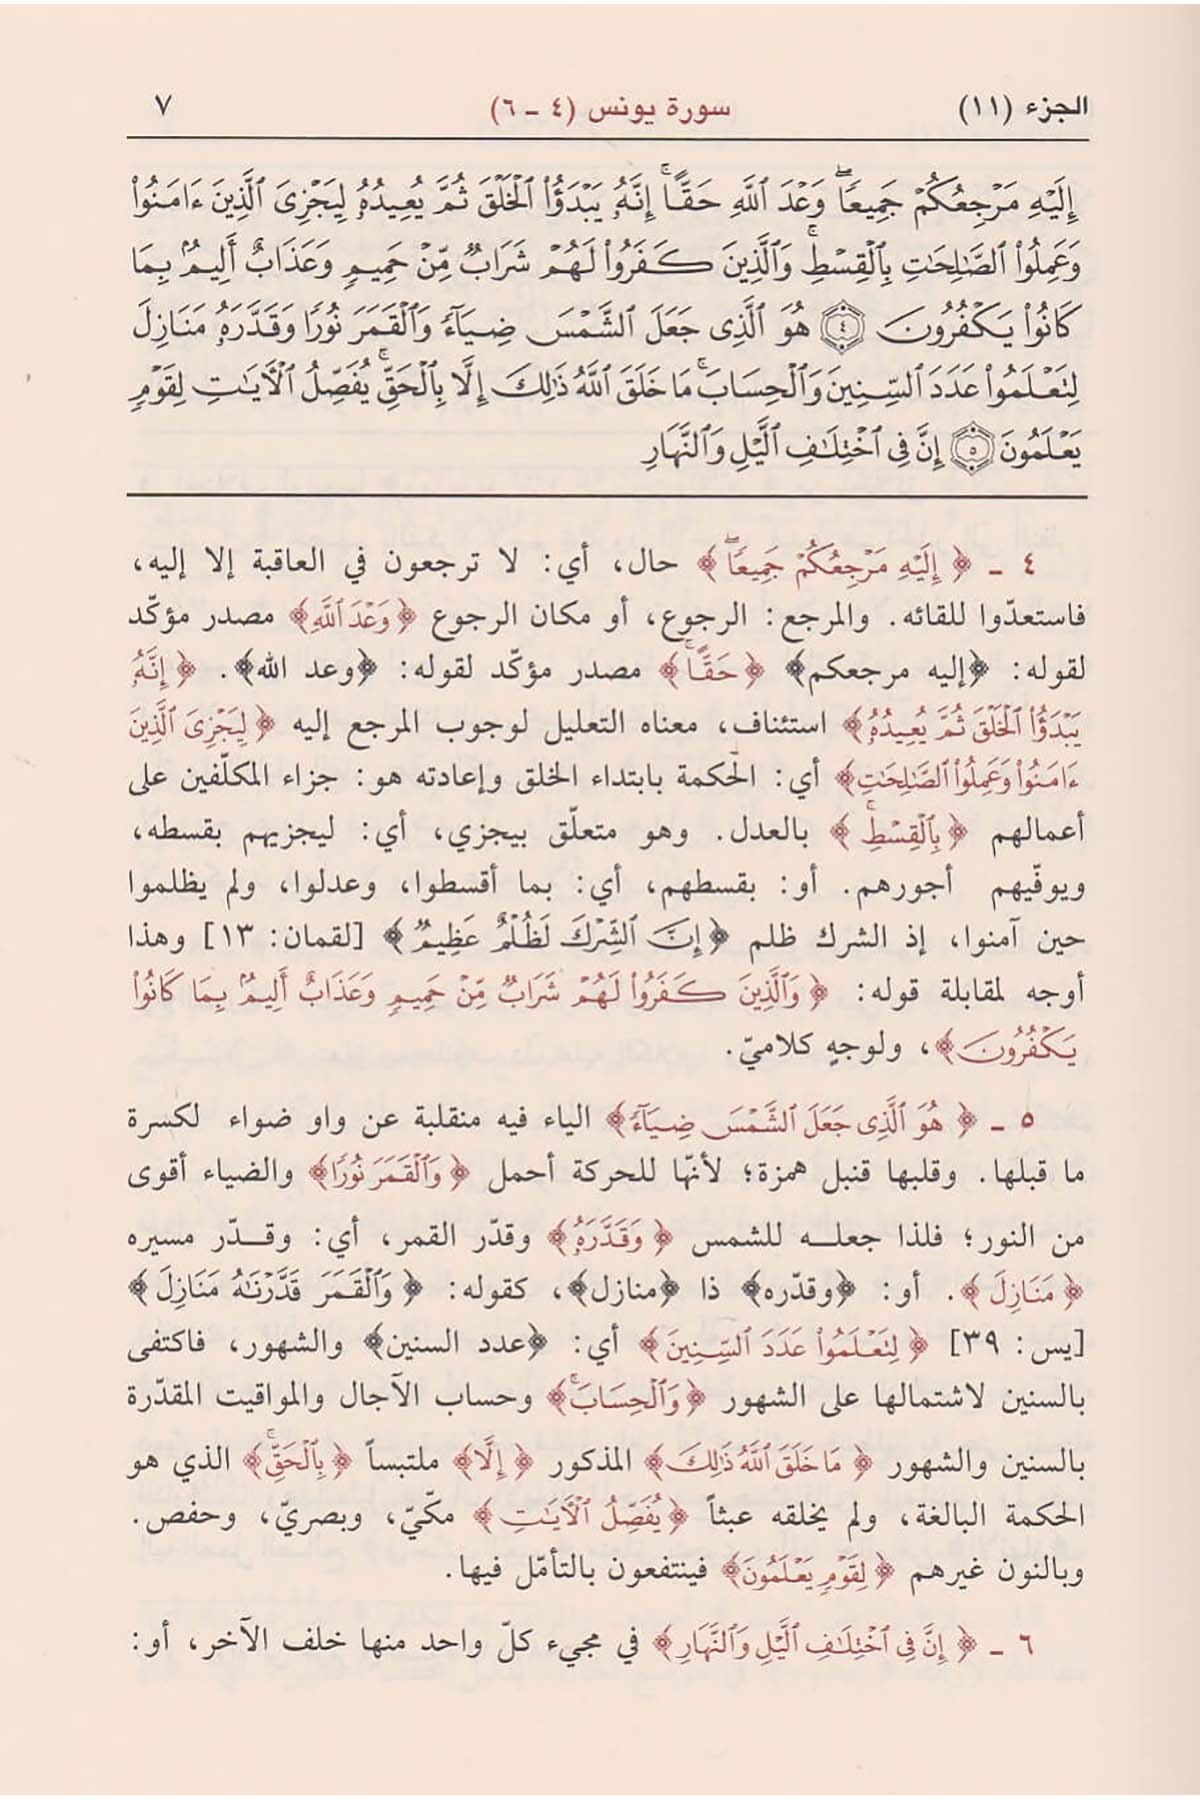 الجزء (١١) سورة يونس (٤ - ٦) ٧
إِلَيْهِ مَرْجِعُكُمْ جَمِيعًا ۖ وَعْدَ ٱللَّهِ حَقًّا ۚ إِنَّهُۥ يَبْدَؤُا۟ ٱلْخَلْقَ ثُمَّ يُعِيدُهُۥ لِيَجْزِىَ ٱلَّذِينَ ءَامَنُوا۟
وَعَمِلُوا۟ ٱلصَّٰلِحَٰتِ بِٱلْقِسْطِ ۚ وَٱلَّذِينَ كَفَرُوا۟ لَهُمْ شَرَابٌ مِّنْ حَمِيمٍ وَعَذَابٌ أَلِيمٌۢ بِمَا
كَانُوا۟ يَكْفُرُونَ ٤ هُوَ ٱلَّذِى جَعَلَ ٱلشَّمْسَ ضِيَآءً وَٱلْقَمَرَ نُورًا وَقَدَّرَهُۥ مَنَازِلَ
لِتَعْلَمُوا۟ عَدَدَ ٱلسِّنِينَ وَٱلْحِسَابَ ۚ مَا خَلَقَ ٱللَّهُ ذَٰلِكَ إِلَّا بِٱلْحَقِّ ۚ يُفَصِّلُ ٱلْءَايَٰتِ لِقَوْمٍ
يَعْلَمُونَ ٥ إِنَّ فِى ٱخْتِلَٰفِ ٱلَّيْلِ وَٱلنَّهَارِ
٤ - ﴿إِلَيْهِ مَرْجِعُكُمْ جَمِيعًا ۖ﴾ حال، أي: لا ترجعون في العاقبة إلا إليه،
فاستعدّوا للقائه. والمرجع: الرجوع، أو مكان الرجوع ﴿وَعْدَ ٱللَّهِ﴾ مصدر مؤكّد
لقوله: ﴿إليه مرجعكم﴾ ﴿حَقًّا ۚ﴾ مصدر مؤكّد لقوله: ﴿وعد الله﴾. ﴿إِنَّهُۥ
يَبْدَؤُا۟ ٱلْخَلْقَ ثُمَّ يُعِيدُهُۥ﴾ استئناف، معناه التعليل لوجوب المرجع إليه ﴿لِيَجْزِىَ ٱلَّذِينَ
ءَامَنُوا۟ وَعَمِلُوا۟ ٱلصَّٰلِحَٰتِ﴾ أي: الحكمة بابتداء الخلق وإعادته هو: جزاء المكلّفين على
أعمالهم ﴿بِٱلْقِسْطِ ۚ﴾ بالعدل. وهو متعلّق بيجزي، أي: ليجزيهم بقسطه،
ويوفّيهم أجورهم. أو: بقسطهم، أي: بما أقسطوا، وعدلوا، ولم يظلموا
حين آمنوا، إذ الشرك ظلم ﴿إِنَّ ٱلشِّرْكَ لَظُلْمٌ عَظِيمٌ﴾ [لقمان: ١٣] وهذا
أوجه لمقابلة قوله: ﴿وَٱلَّذِينَ كَفَرُوا۟ لَهُمْ شَرَابٌ مِّنْ حَمِيمٍ وَعَذَابٌ أَلِيمٌۢ بِمَا كَانُوا۟
يَكْفُرُونَ﴾، ولوجهٍ كلاميّ.
٥ - ﴿هُوَ ٱلَّذِى جَعَلَ ٱلشَّمْسَ ضِيَآءً﴾ الياء فيه منقلبة عن واو ضواء لكسرة
ما قبلها. وقلبها قنبل همزة؛ لأنّها للحركة أحمل ﴿وَٱلْقَمَرَ نُورًا﴾ والضياء أقوى
من النور؛ فلذا جعله للشمس ﴿وَقَدَّرَهُۥ﴾ وقدّر القمر، أي: وقدّر مسيره
﴿مَنَازِلَ﴾. أو: ﴿وقدّره﴾ ذا ﴿منازل﴾، كقوله: ﴿وَٱلْقَمَرَ قَدَّرْنَٰهُ مَنَازِلَ﴾
[يس: ٣٩] ﴿لِتَعْلَمُوا۟ عَدَدَ ٱلسِّنِينَ﴾ أي: ﴿عدد السنين﴾ والشهور، فاكتفى
بالسنين لاشتمالها على الشهور ﴿وَٱلْحِسَابَ ۚ﴾ وحساب الآجال والمواقيت المقدّرة
بالسنين والشهور ﴿مَا خَلَقَ ٱللَّهُ ذَٰلِكَ﴾ المذكور ﴿إِلَّا﴾ ملتبساً ﴿بِٱلْحَقِّ ۚ﴾ الذي هو
الحكمة البالغة، ولم يخلقه عبثاً ﴿يُفَصِّلُ ٱلْءَايَٰتِ﴾ مكّيّ، وبصريّ، وحفص.
وبالنون غيرهم ﴿لِقَوْمٍ يَعْلَمُونَ﴾ فينتفعون بالتأمّل فيها.
٦ - ﴿إِنَّ فِى ٱخْتِلَٰفِ ٱلَّيْلِ وَٱلنَّهَارِ﴾ في مجيء كلّ واحد منها خلف الآخر، أو: